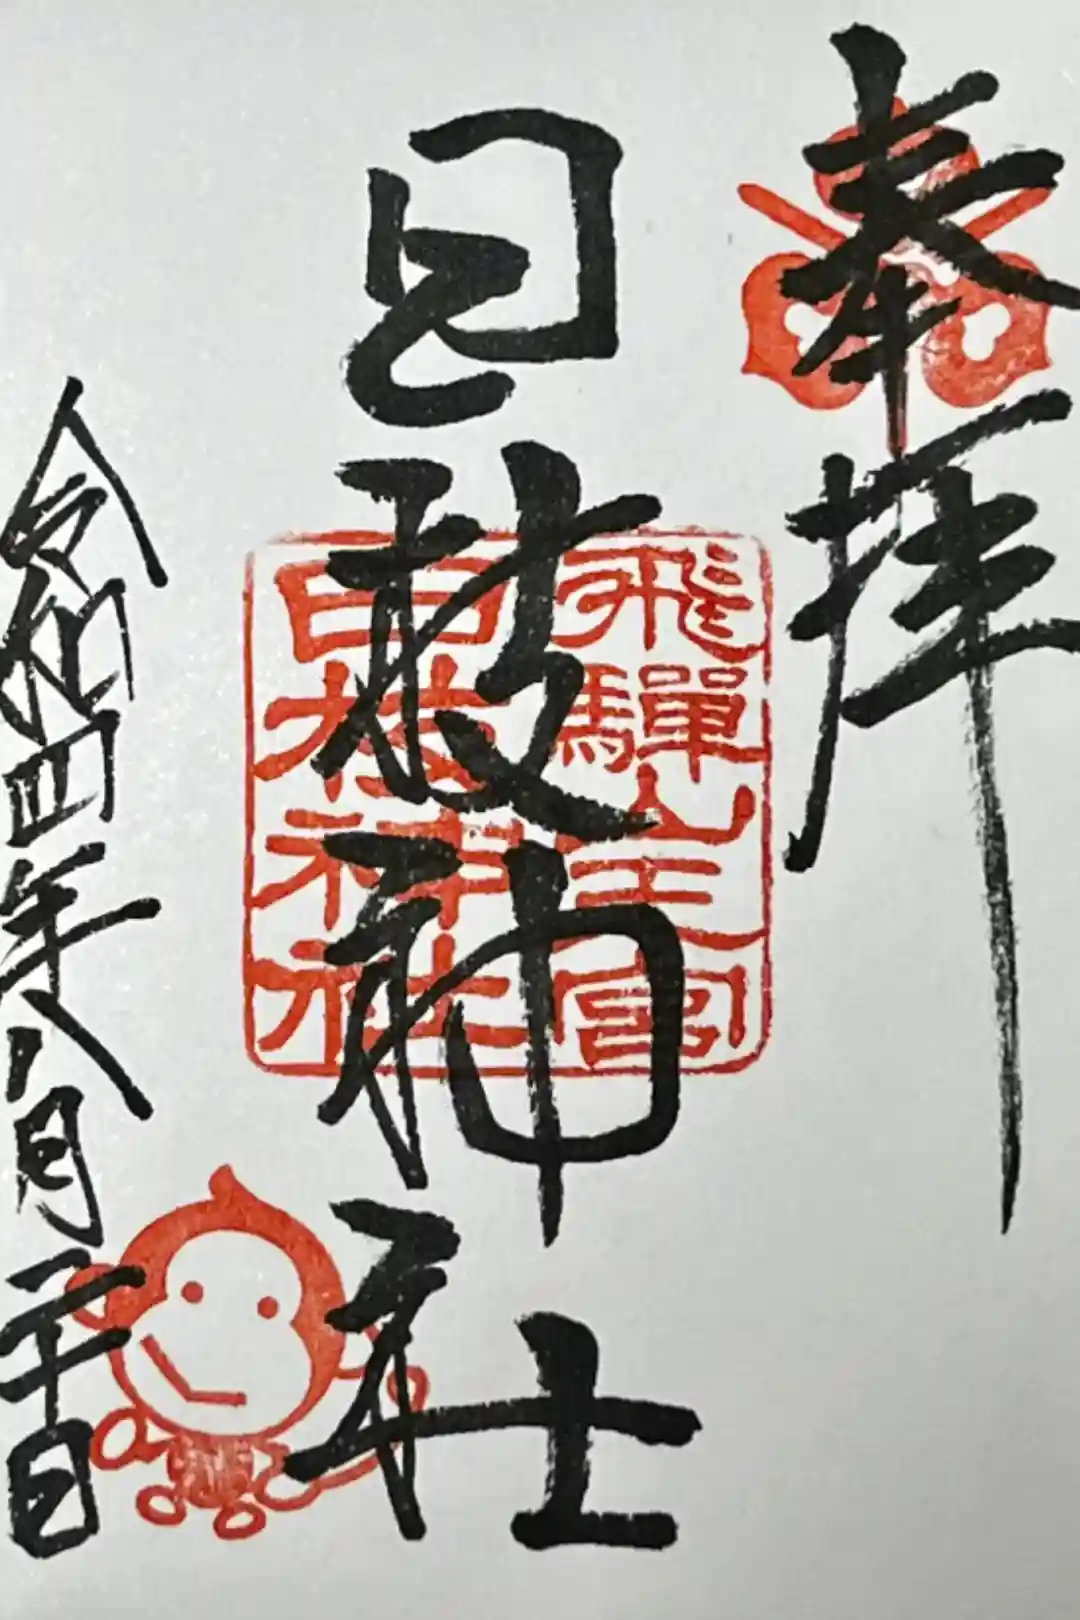 奉拝
飛驒山王宮
日枝神社
日枝神社
令和四年八月二十日